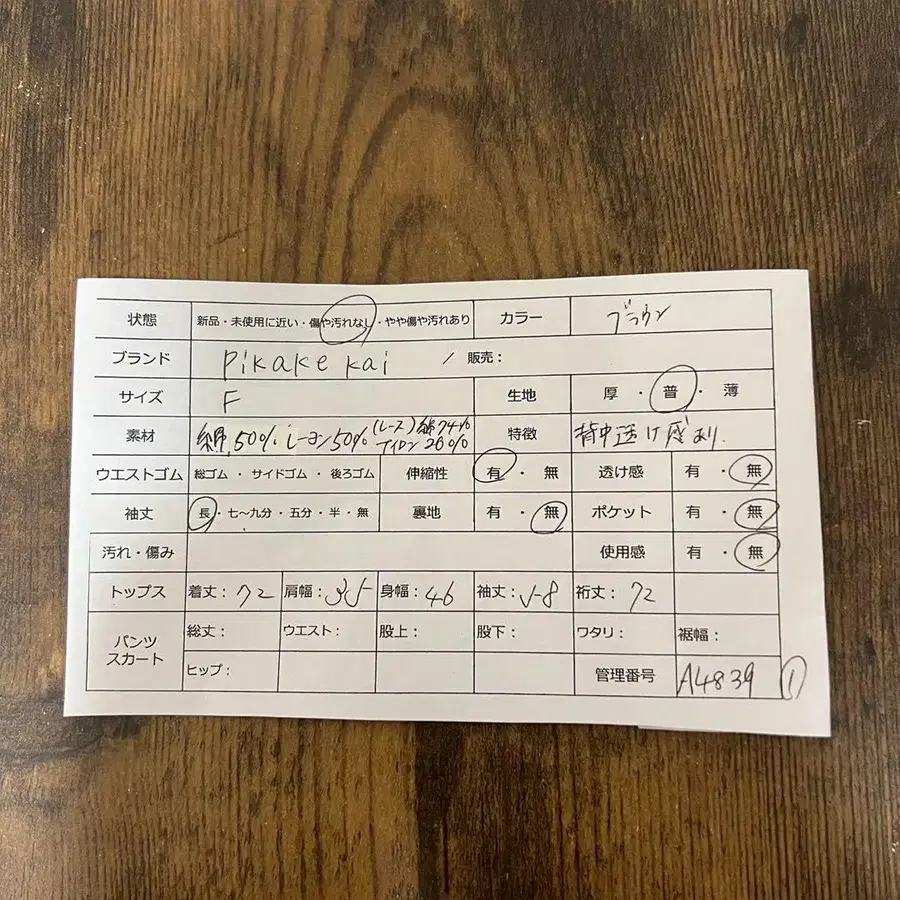 状態 新品・未使用に近い・傷や汚れなし・やや傷や汚れあり カラー ブラウン
ブランド Pikake kai / 販売：
サイズ F 生地 厚・普・薄
素材 綿50% レーヨン50% (レース)綿74% ナイロン26% 特徴 背中透け感あり.
ウエストゴム 総ゴム・サイドゴム・後ろゴム 伸縮性 有・無 透け感 有・無
袖丈 長・七〜九分・五分・半・無 裏地 有・無 ポケット 有・無
汚れ・傷み 使用感 有・無
トップス 着丈：72 肩幅：35 身幅：46 袖丈：58 裄丈：72
パンツ スカート 総丈： ウエスト： 股上： 股下： ワタリ： 裾幅：
ヒップ： 管理番号 A4839 ①